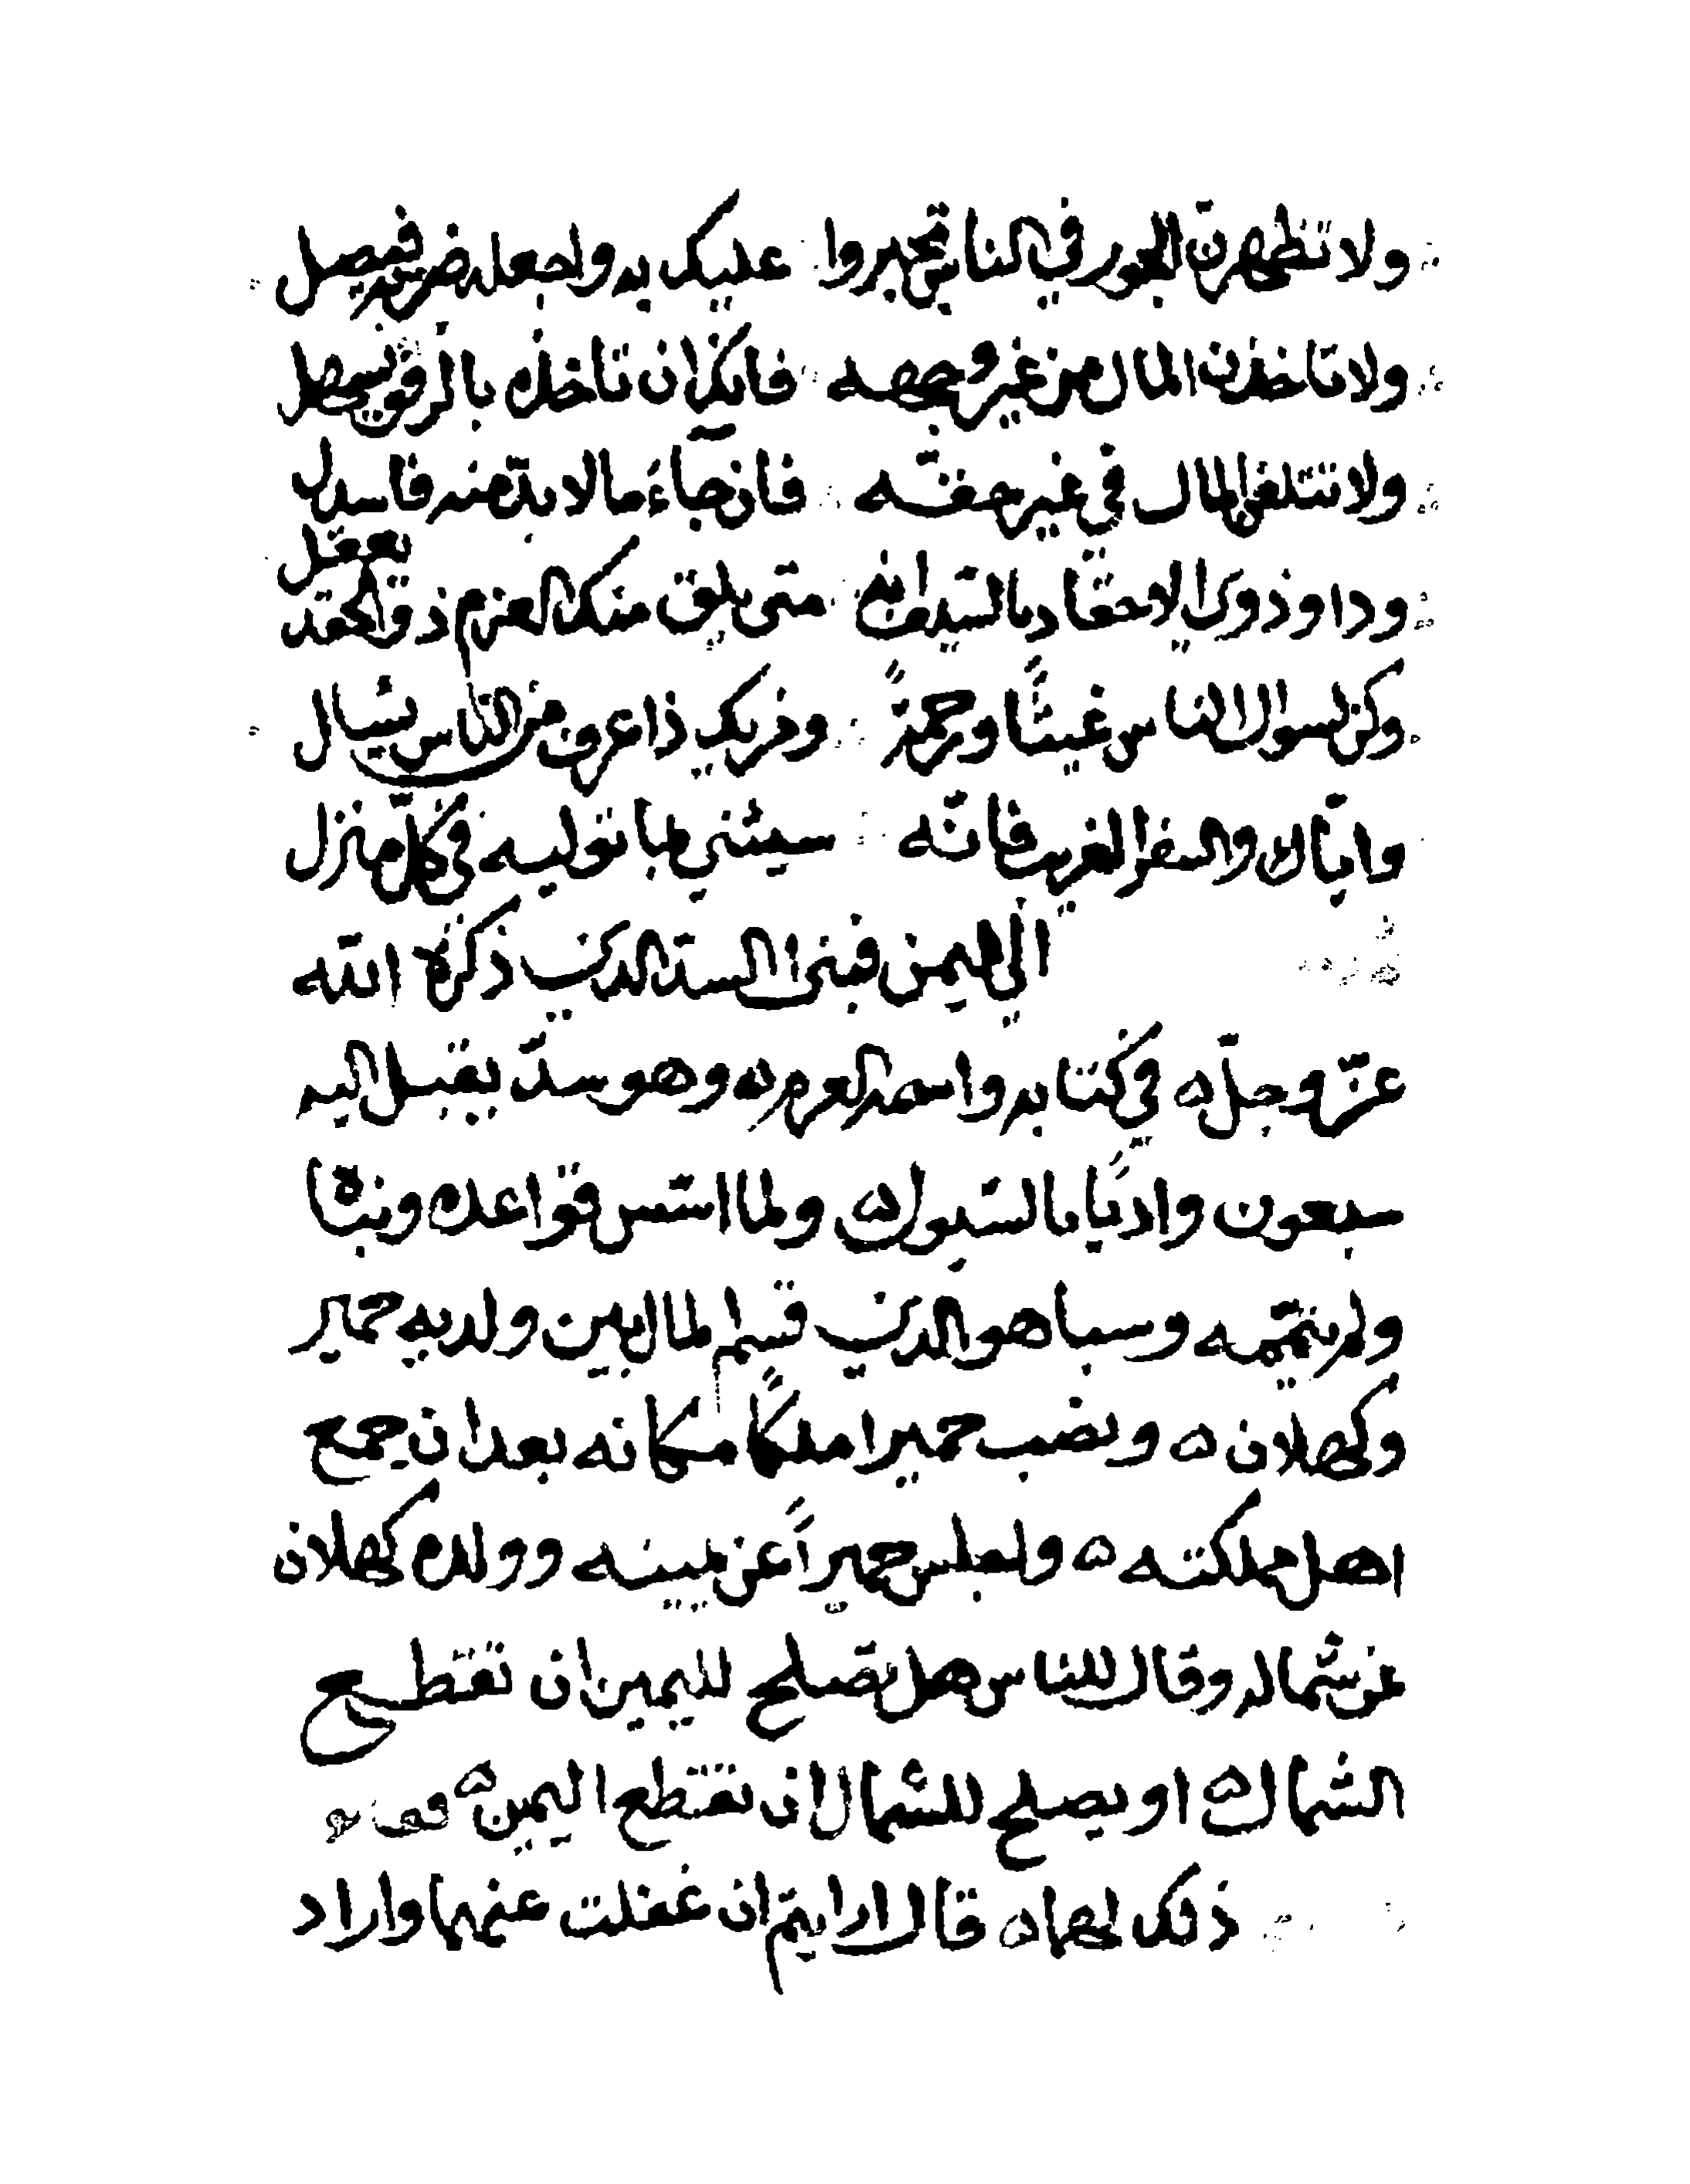 ولا تظهرن الجور في الناس تجبروا عليك به واجعله ضربة فيصل
ولا تاخذن المال من غير وجهه فانك ان تاخذه بالرفق يسهل
ولا تتلفن المال في غير حقه فان جاء ما لا بد منه فابذل
وداو ذوي الاحقاد بالسيف انه متى يلق منك العزم ذو الحقد يعقل
وكن لسوال الناس غيثًا ورحمةً ومن يك ذا عرف من الناس يسال
واياك والسفر الغريب فانه سيثني بما توليه في كل منزل
الي اليمن فبنى السد الذي ذكره الله
عزّ وجلّ ه في كتابه واسمه العرم ه وهو سدّ يقبل اليه
سبعون واديًا بالسيول ه ولما اسّس قواعده وبناه
ولم يتممه وسبا هو الذي قسم المال بين ولديه حمير
وكهلان ه ونصب حميرا ملكًا مكانه بعد ان جمع
اهل مملكته ه واجلس حميرًا عن يمينه وولده كهلان
عن شماله وقال للناس هل يصلح لليمين ان تقطع
الشمال ه او يصلح للشمال ان تقطع اليمين ه
ذلك لهما ه قال ارايتم ان غفلت عنهما واراد